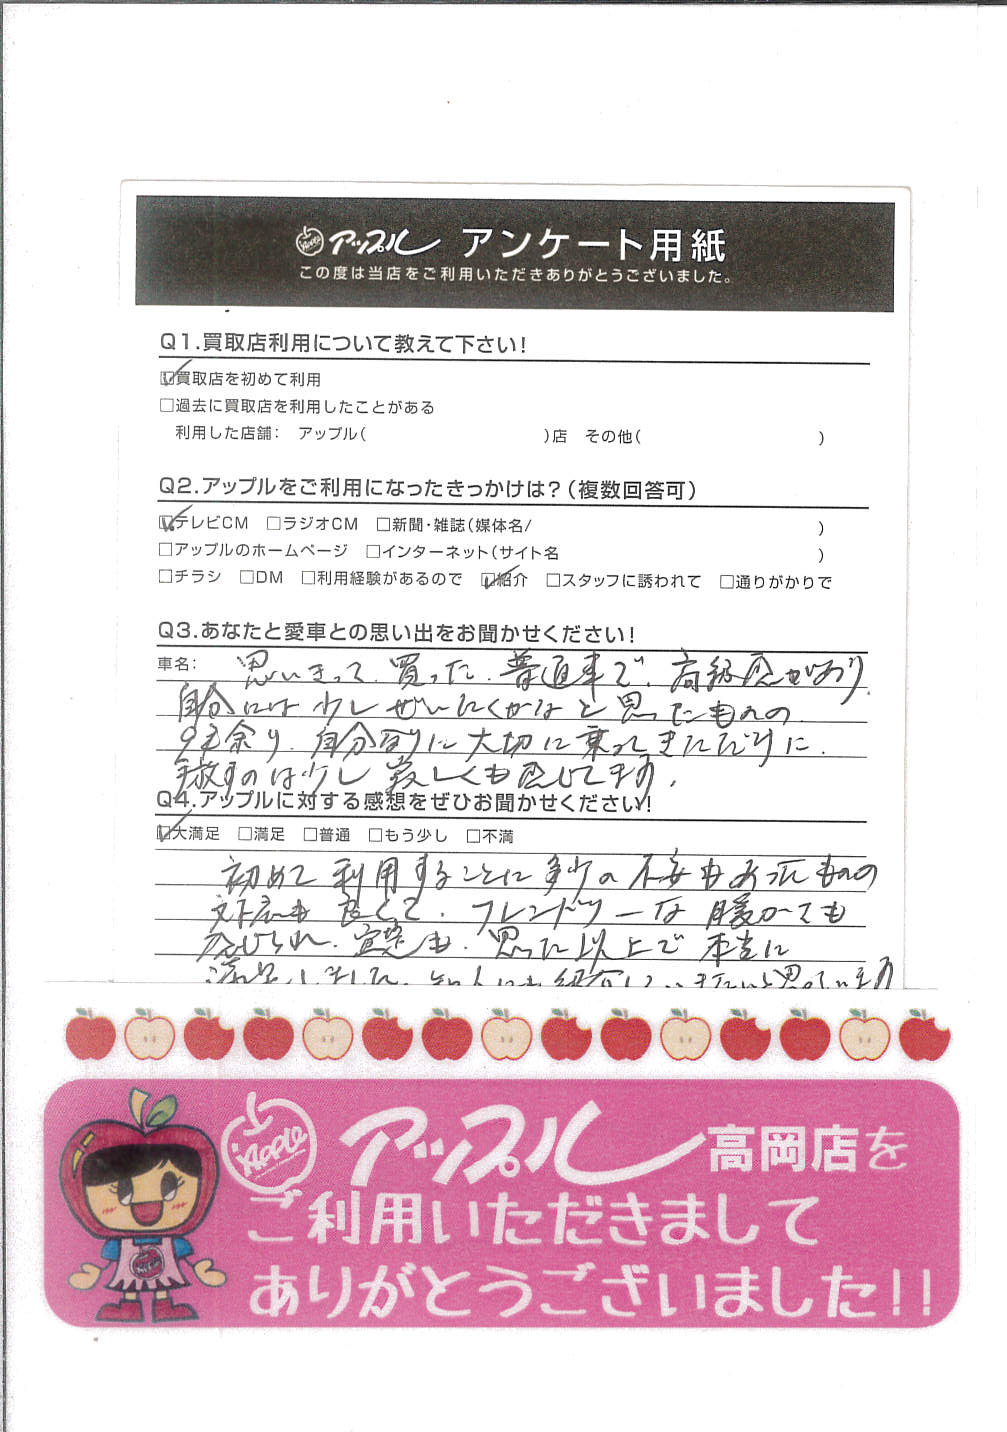 Apple アップル アンケート用紙
この度は当店をご利用いただきありがとうございました。
Q1.買取店利用について教えて下さい!
☑買取店を初めて利用
□過去に買取店を利用したことがある
利用した店舗: アップル( )店 その他( )
Q2.アップルをご利用になったきっかけは?(複数回答可)
☑テレビCM □ラジオCM □新聞・雑誌(媒体名/ )
□アップルのホームページ □インターネット(サイト名 )
□チラシ □DM □利用経験があるので ☑紹介 □スタッフに誘われて □通りがかりで
Q3.あなたと愛車との思い出をお聞かせください!
車名: 思いきって、買った、普通車で、高級感があり、
自分には少しぜいたくかなと思ったものの
9年余り、自分なりに大切に乗ってきただけに、
手放すのは少し寂しくも感じてます。
Q4.アップルに対する感想をぜひお聞かせください!
☑大満足 □満足 □普通 □もう少し □不満
初めて利用することに多少の不安もあったものの
対応も良くて、フレンドリーな暖かさも
感じられ、査定も、思った以上で本当に
満足しました。知人にも紹介していきたいと思っています
Apple アップル 高岡店を
ご利用いただきまして
ありがとうございました!!